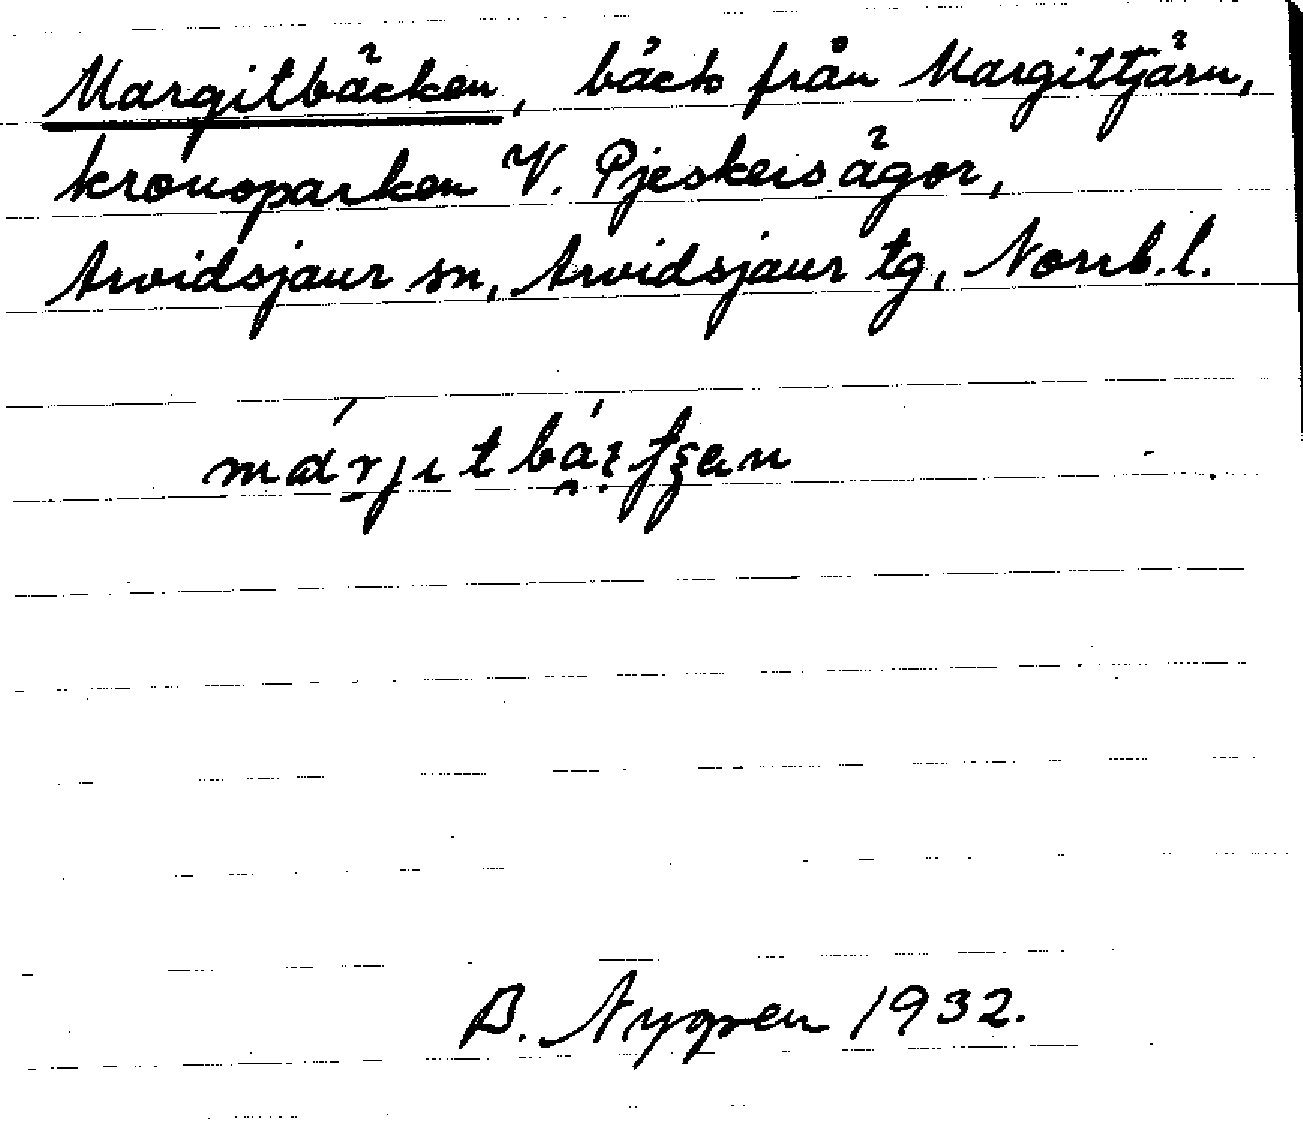 Margitbäcken, bäck från Margittjärn,
kronoparken V. Pjeskers ägor,
Arvidsjaur sn, Arvidsjaur tg, Norrb.l.
B. Nygren 1932.